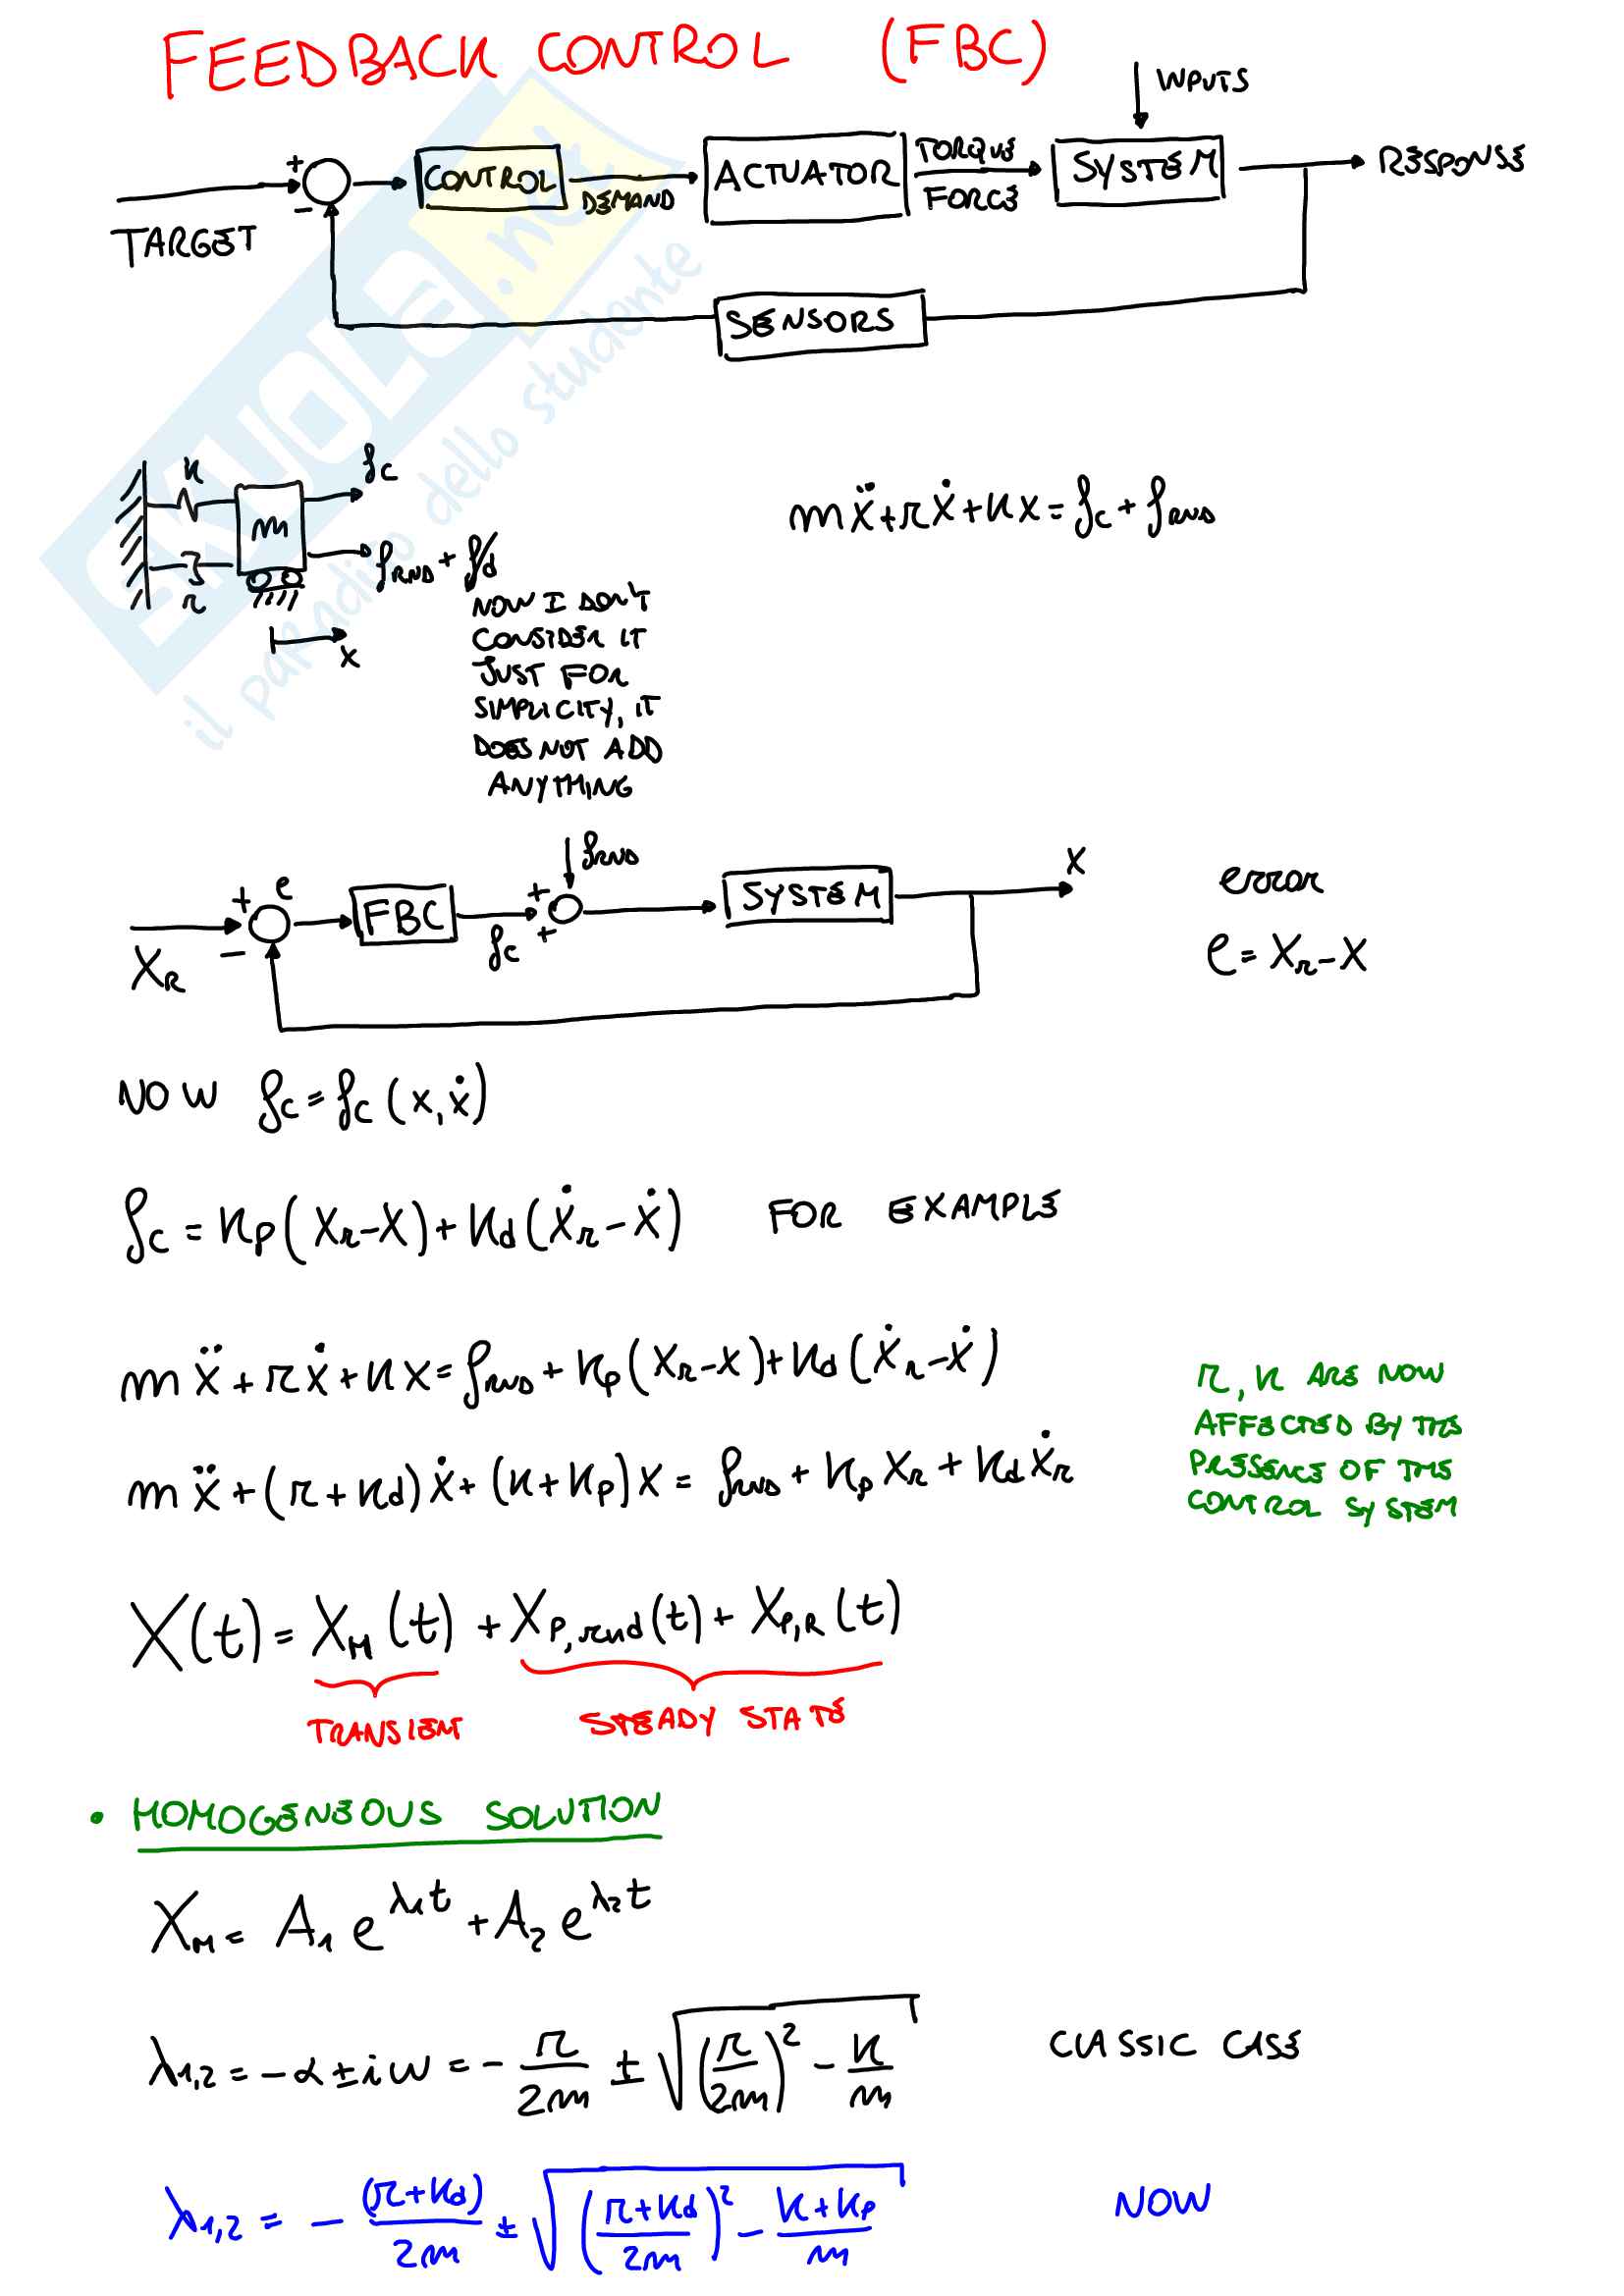 FEEDBACK CONTROL (FBC)
INPUTS
TARGET + - CONTROL DEMAND ACTUATOR TORQUE FORCE SYSTEM RESPONSE
SENSORS
SKUOLA.net
il paradiso dello studente
k m r x
f_c
f_RND + f_d
NOW I DON'T
CONSIDER IT
JUST FOR
SIMPLICITY, IT
DOES NOT ADD
ANYTHING
mẍ+rẋ+kx=f_c+f_RND
X_R + - e FBC f_c + + f_RND SYSTEM X
error
e=X_r-X
NOW f_c=f_c(x,ẋ)
f_c=k_p(X_r-X)+k_d(Ẋ_r-Ẋ) FOR EXAMPLE
mẍ+rẋ+kx=f_RND+k_p(X_r-x)+k_d(Ẋ_r-ẋ)
mẍ+(r+k_d)ẋ+(k+k_p)x=f_RND+k_pX_r+k_dẊ_r
r, k ARE NOW
AFFECTED BY THE
PRESENCE OF THE
CONTROL SYSTEM
X(t)=X_H(t)+X_P,rnd(t)+X_P,R(t)
TRANSIENT STEADY STATE
• HOMOGENEOUS SOLUTION
X_H=A_1e^λ1t+A_2e^λ2t
λ_1,2=-α±iω=-r/2m±√((r/2m)²-k/m) CLASSIC CASE
λ_1,2=-(r+k_d)/2m±√((r+k_d/2m)²-k+k_p/m) NOW